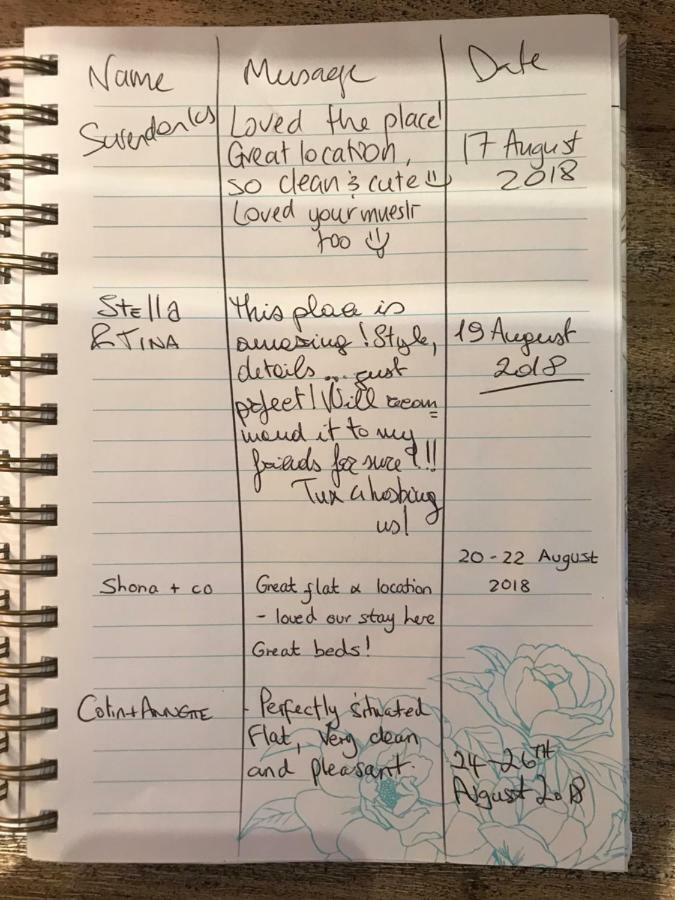 Name Message Date
Loved the place!
Great location, 17 August
so clean & cute 2018
Loved your muesli
too
Stella This place is
& TINA amazing! Style, 19 August
details... just 2018
perfect! Will recom
mend it to my
friends for sure!!!
hosting
us!
20-22 August
Shona + co Great flat & location 2018
- loved our stay here
Great beds!
Colin + ANNETTE - Perfectly situated
Flat, Very clean 24-26TH
and pleasant. August 2018